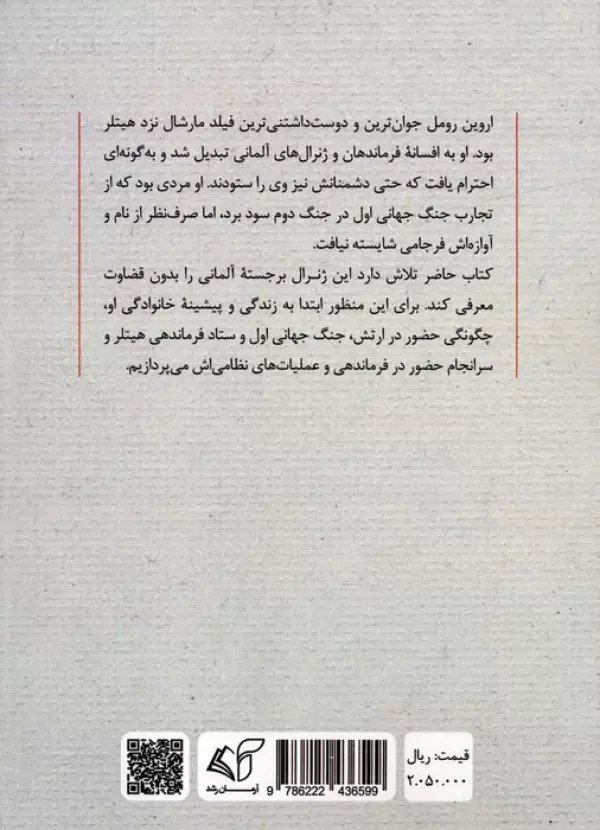 اروین رومل جوان‌ترین و دوست‌داشتنی‌ترین فیلد مارشال نزد هیتلر
بود. او به افسانهٔ فرماندهان و ژنرال‌های آلمانی تبدیل شد و به‌گونه‌ای
احترام یافت که حتی دشمنانش نیز وی را ستودند. او مردی بود که از
تجارب جنگ جهانی اول در جنگ دوم سود برد، اما صرف‌نظر از نام و
آوازه‌اش فرجامی شایسته نیافت.
کتاب حاضر تلاش دارد این ژنرال برجستهٔ آلمانی را بدون قضاوت
معرفی کند. برای این منظور ابتدا به زندگی و پیشینهٔ خانوادگی او،
چگونگی حضور در ارتش، جنگ جهانی اول و ستاد فرماندهی هیتلر و
سرانجام حضور در فرماندهی و عملیات‌های نظامی‌اش می‌پردازیم.
قیمت: ریال
۲.۰۵۰.۰۰۰
9 786222 436599
آرمان رشد